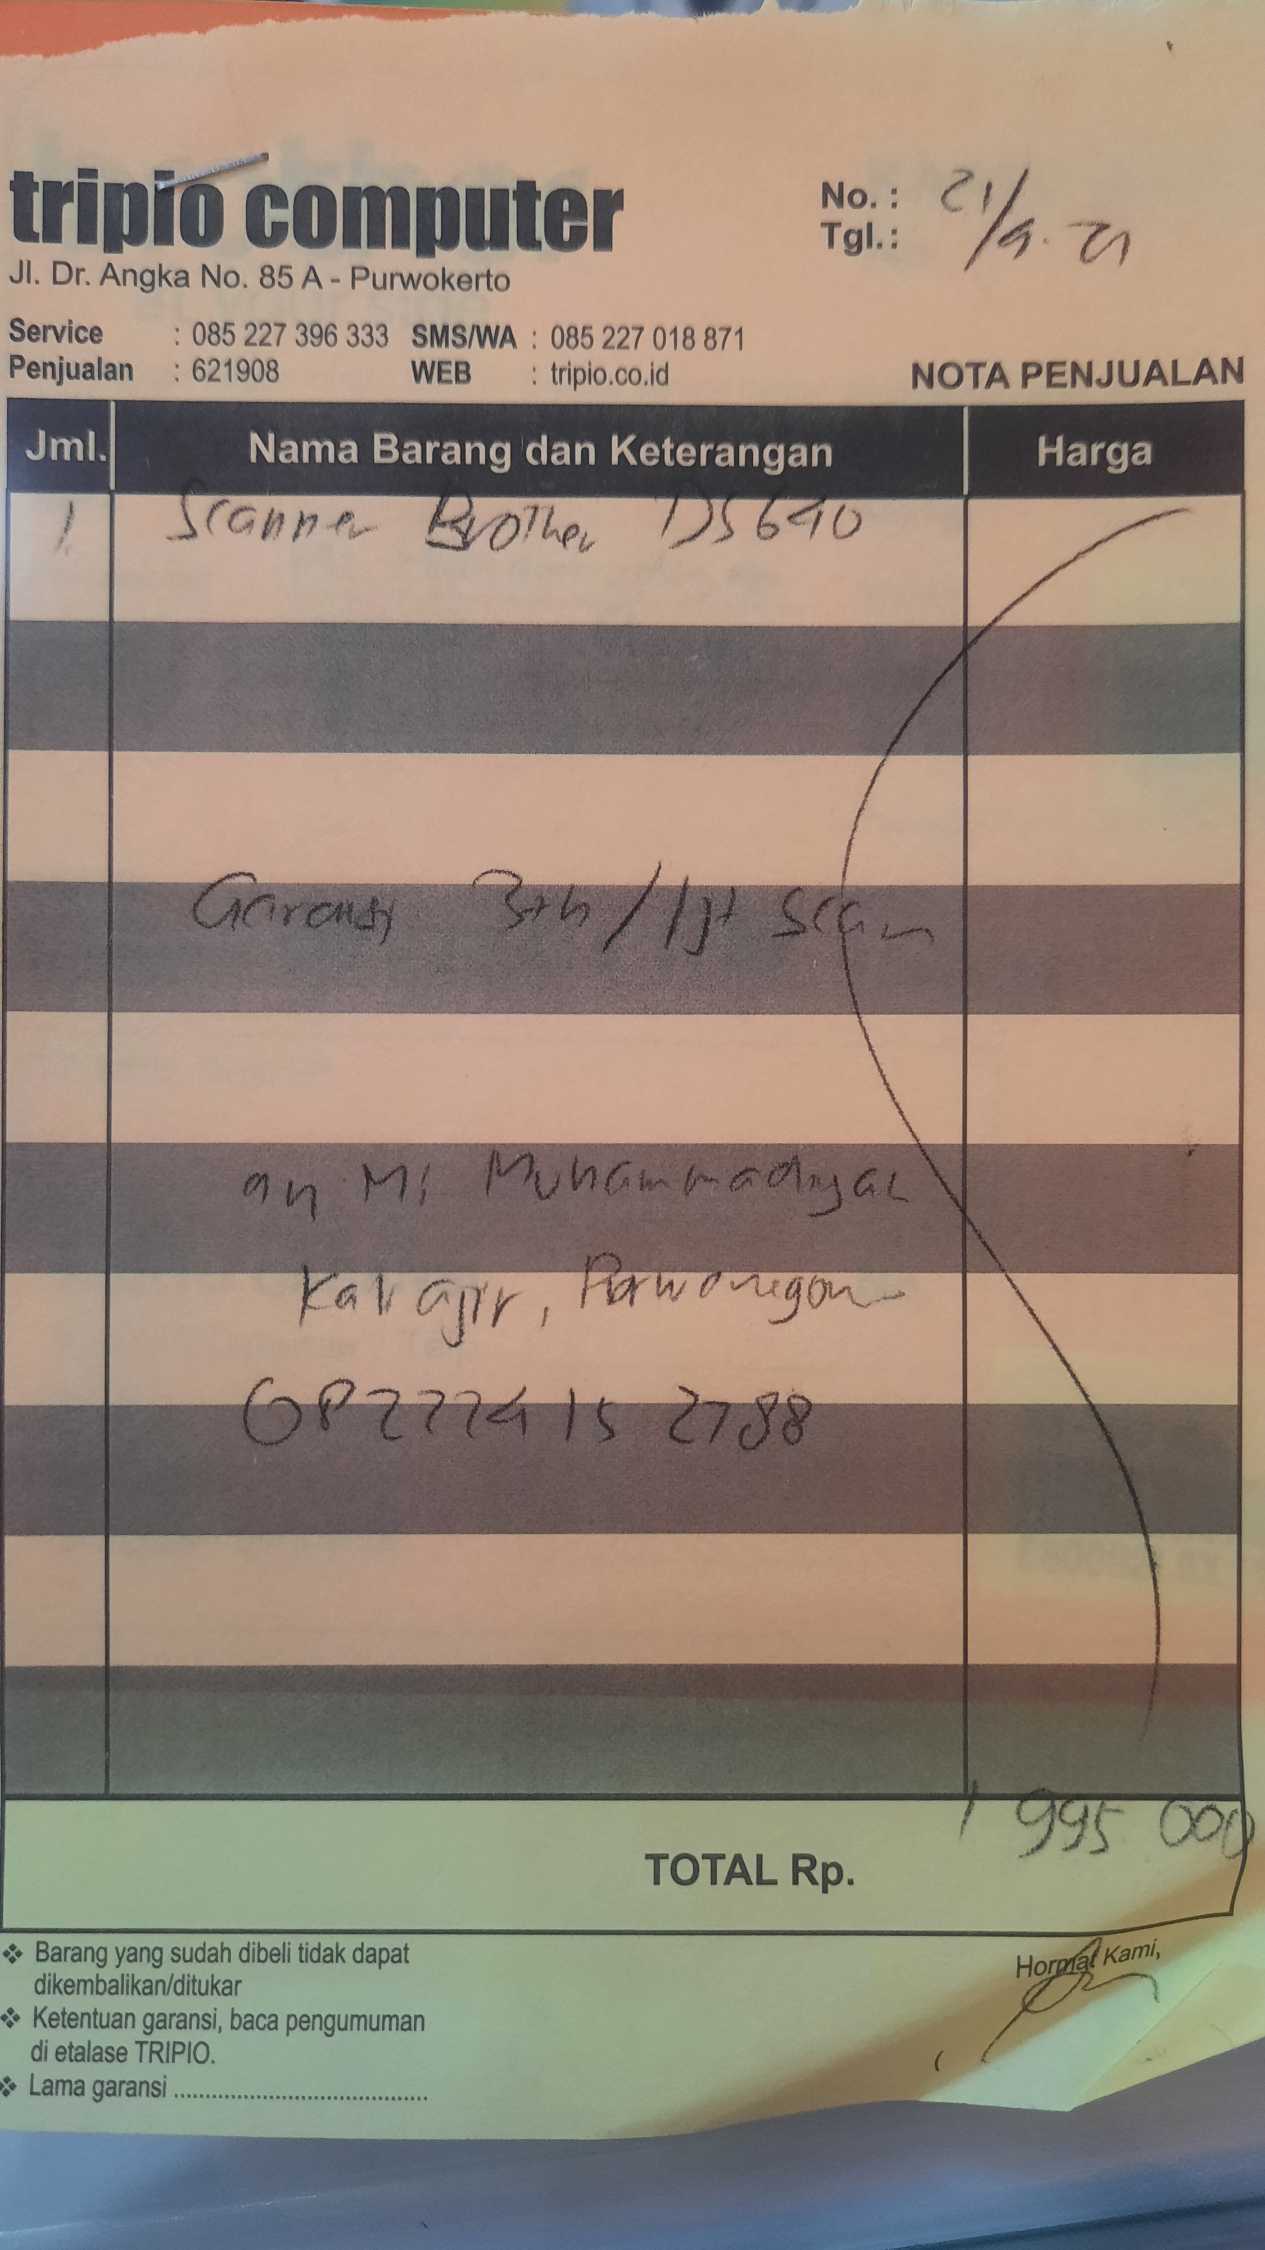 tripio computer
Jl. Dr. Angka No. 85 A - Purwokerto
No. :
Tgl. : 21/9. 21
Service : 085 227 396 333 SMS/WA : 085 227 018 871
Penjualan : 621908 WEB : tripio.co.id
NOTA PENJUALAN
Jml. Nama Barang dan Keterangan Harga
1 Scanner Brother DS640
Garansi 3th/1jt scan
an Mi Muhammadiyah
Kaliajir, Purwonegoro
08222415 2788
TOTAL Rp. 1 995 000
❖ Barang yang sudah dibeli tidak dapat
dikembalikan/ditukar
❖ Ketentuan garansi, baca pengumuman
di etalase TRIPIO.
❖ Lama garansi ......................................
Hormat Kami,